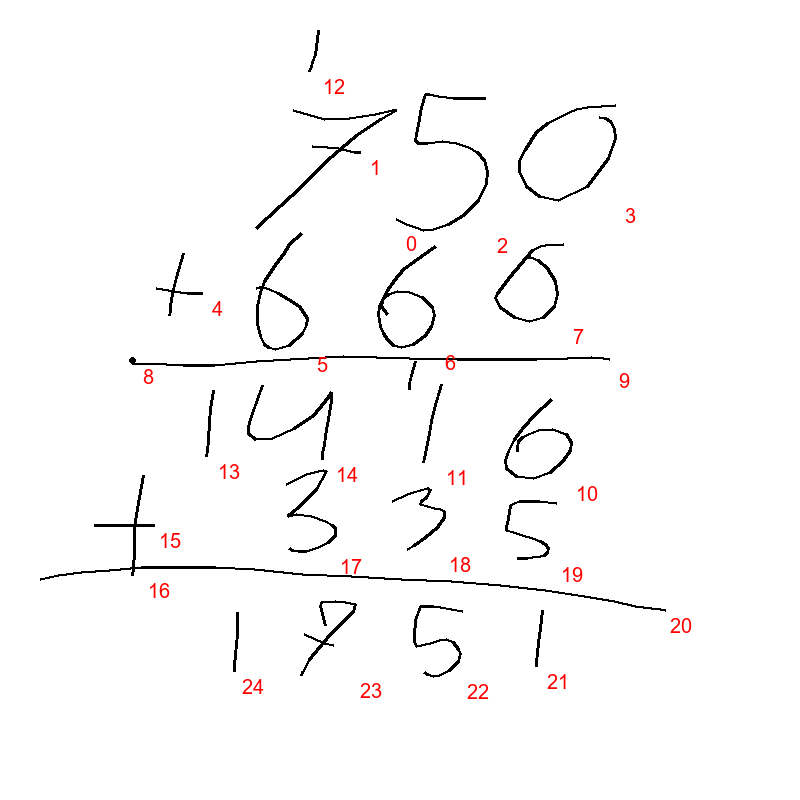 1
12
750
1
3
0 2
+ 666
4
7
5 6
8 9
1
1416
13 14 11
10
+ 335
15
17 18 19
16
20
1751
24 23 22 21